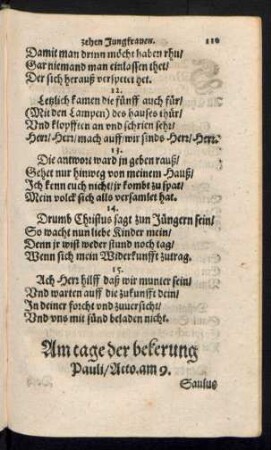 zehen Jungfrauen. 110
Damit man drinn möcht haben rhu/
Gar niemand man einlassen thet/
Der sich herauß verspetet het.
12.
Letzlich kamen die fünff auch für/
(Mit den Lampen) des hauses thür/
Vnd klopfften an vnd schrien sehr/
Herr/ Herr/ mach auff wir sinds Herr/ Herr.
13.
Die antwort ward jn geben rauß/
Gehet nur hinweg von meinem Hauß/
Ich kenn euch nicht/ jr kombt zu spat/
Mein volck sich alls versamlet hat.
14.
Drumb Christus sagt zun Jüngern sein/
So wacht nun liebe Kinder mein/
Denn jr wist weder stund noch tag/
Wenn sich mein Widerkunfft zutrag.
15.
Ach Herr hilff daß wir munter sein/
Vnd warten auff die zukunfft dein/
In deiner forcht vnd zuuersicht/
Vnd vns mit sünd beladen nicht.
Am tage der bekerung
Pauli/ Acto. am 9.
Saulus